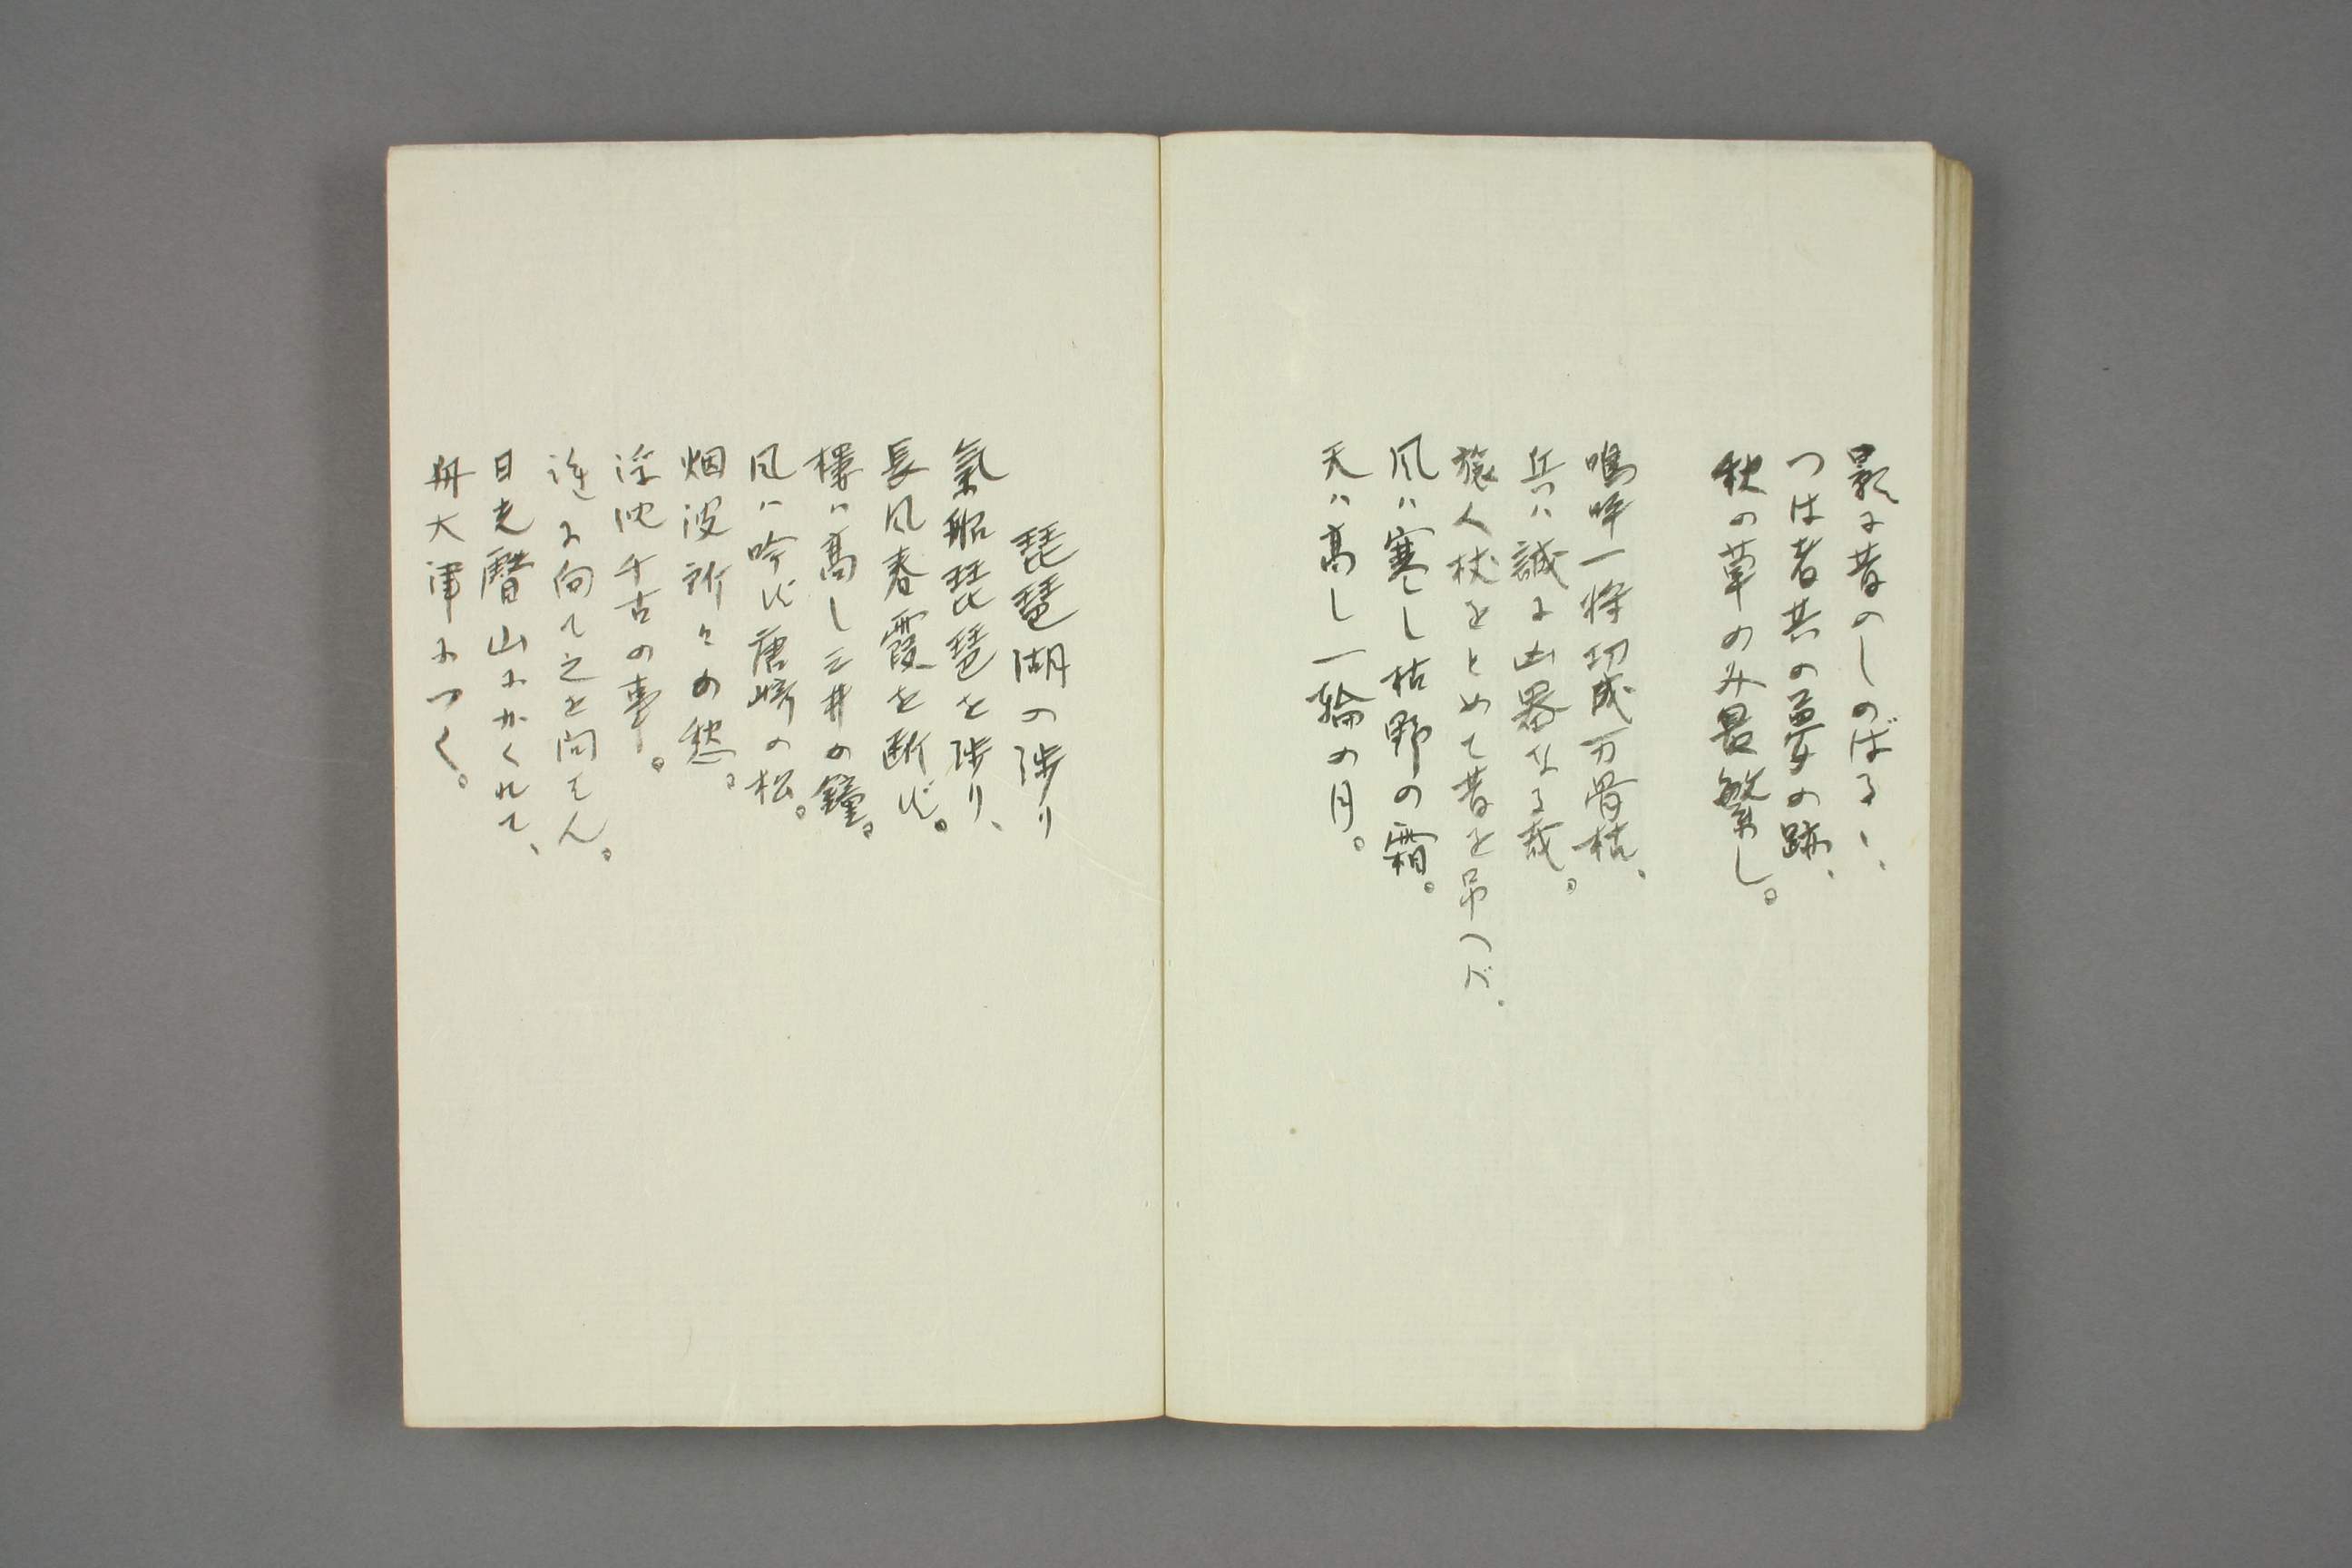 影に昔のしのばるゝ、
つは者共の夢の跡、
秋の草のみ最繁し。
嗚呼一将功成万骨枯、
兵ハ誠に凶器なる哉。
旅人杖をとめて昔を吊へバ、
風ハ寒し枯野の霜。
天ハ高し一輪の月。
琵琶湖の渉り
氣船琵琶を渉り、
長風春霞を断ず。
楼ハ高し三井の鐘。
风ハ吟ず唐崎の松。
烟波所々の愁。
浮沈千古の事。
誰に向て之を問はん。
日光翳山にかくれて、
舟大津につく。